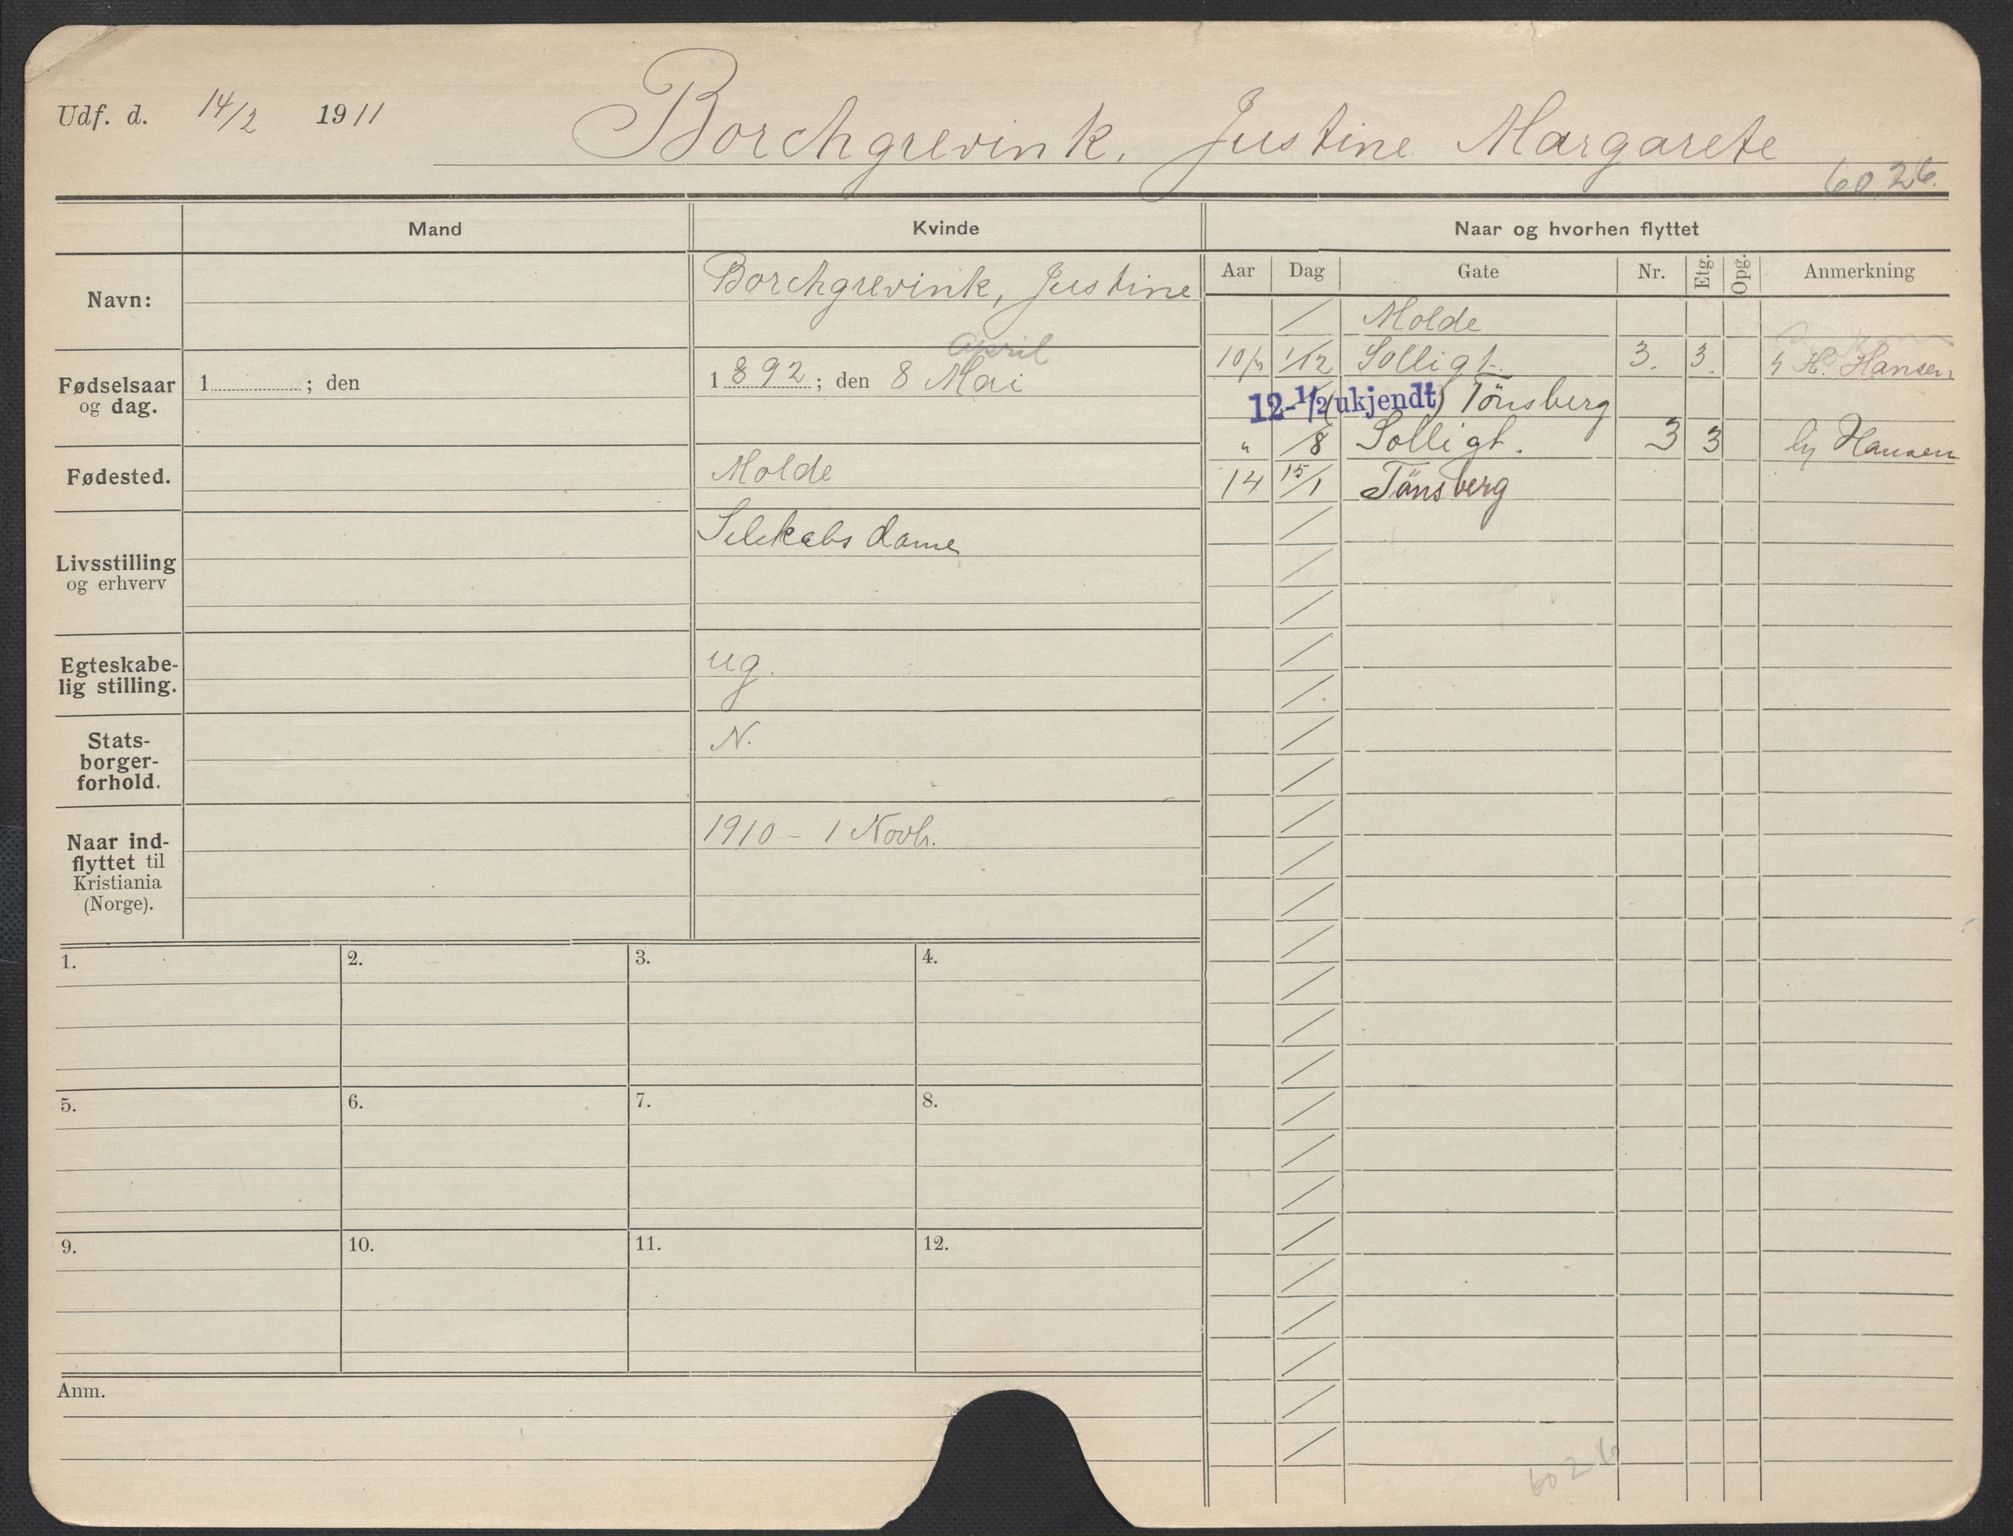 Udf. d. 14/2 1911 Borchgrevink, Justine Margarete
6026.
Mand Kvinde Naar og hvorhen flyttet
Navn: Borchgrevink, Justine
Fødselsaar og dag. 1 ; den 1892 ; den 8 Mai
April
Fødested. Molde
Livsstilling og erhverv Selskabsdame
Egteskabe-
lig stilling. ug.
Stats-
borger-
forhold. N.
Naar ind-
flyttet til
Kristiania
(Norge). 1910 - 1 Novb.
Aar Dag Gate Nr. Etg. Opg. Anmerkning
/ Molde
10/11 1/12 Solligt. 3. 3. H. Hansen
12-1/2 (ukjendt) Tönsberg
" /8 Solligt. 3 3 Hansen
14 15/1 Tönsberg
1. 2. 3. 4.
5. 6. 7. 8.
9. 10. 11. 12.
Anm.
6026